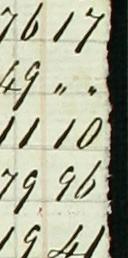 76 17
49 " "
11 10
79 96
19 41